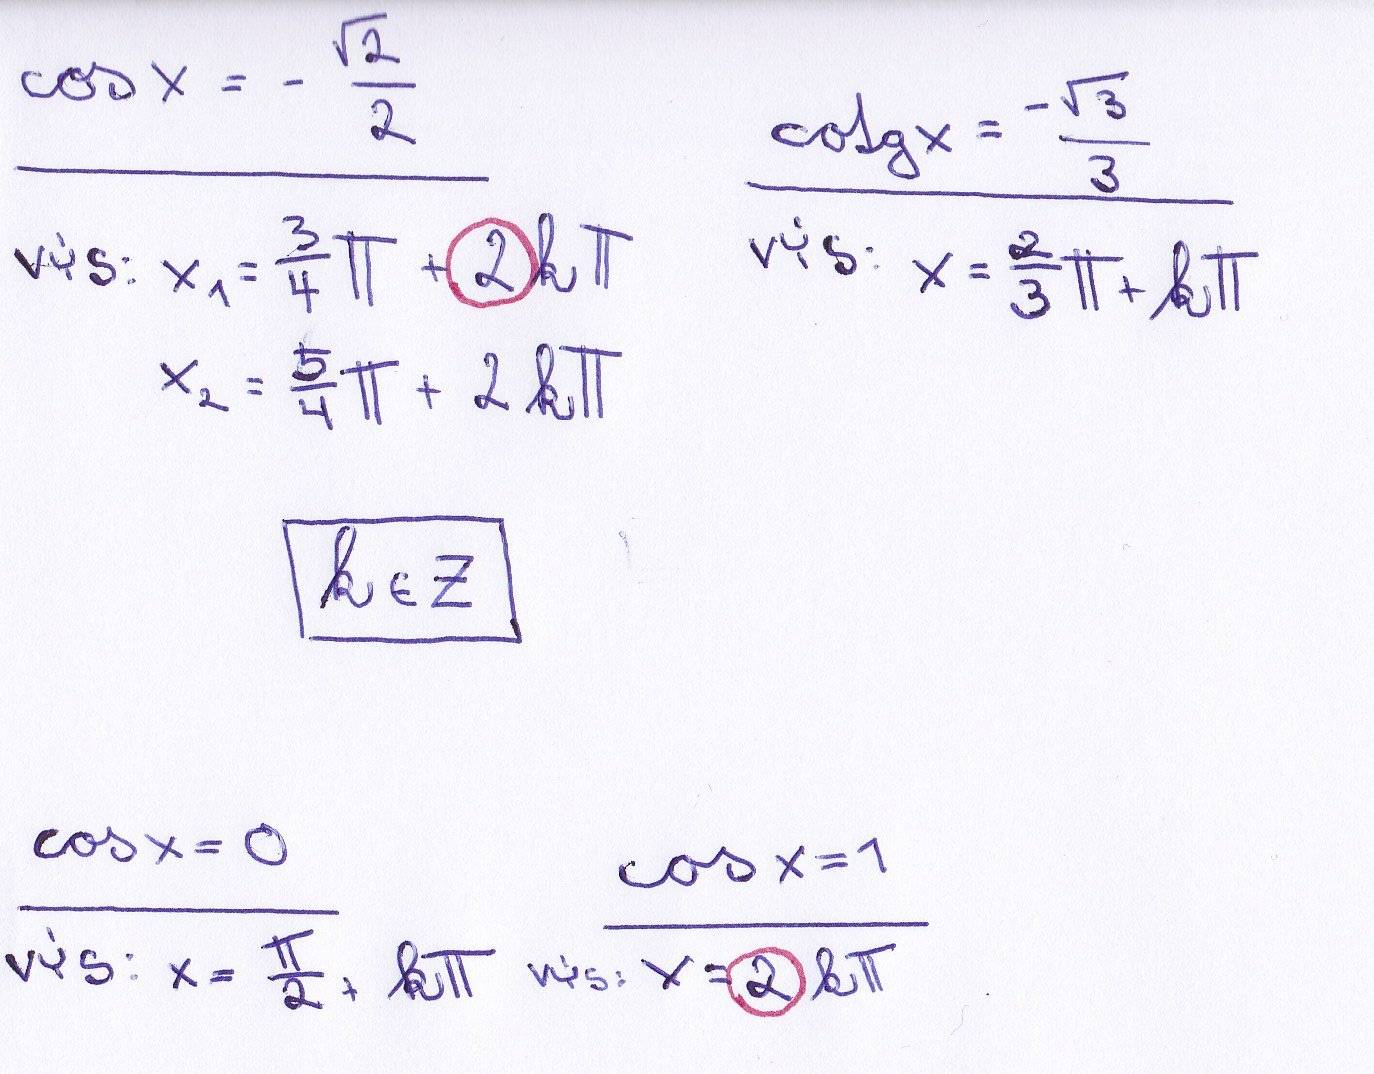 cos x = - √2/2
výs: x₁ = 3/4 π + 2kπ
x₂ = 5/4 π + 2kπ
k ∈ Z
cotg x = -√3/3
výs: x = 2/3 π + kπ
cos x = 0
výs: x = π/2 + kπ
cos x = 1
výs: x = 2kπ